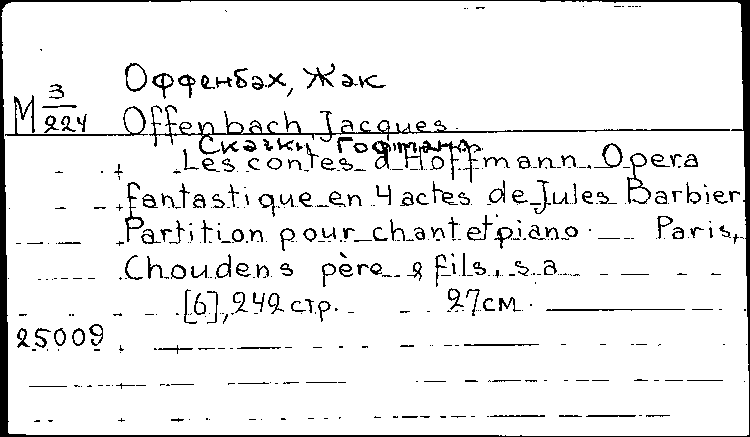 Оффенбах, Жак
М 3/224
Offenbach Jacques.
Сказки Гофмана
Les contes d'Hoffmann. Opera
fantastique en 4 actes de Jules Barbier.
Partition pour chant et piano. Paris,
Choudens père & fils, s a
[6], 242 стр. 27 см.
25009